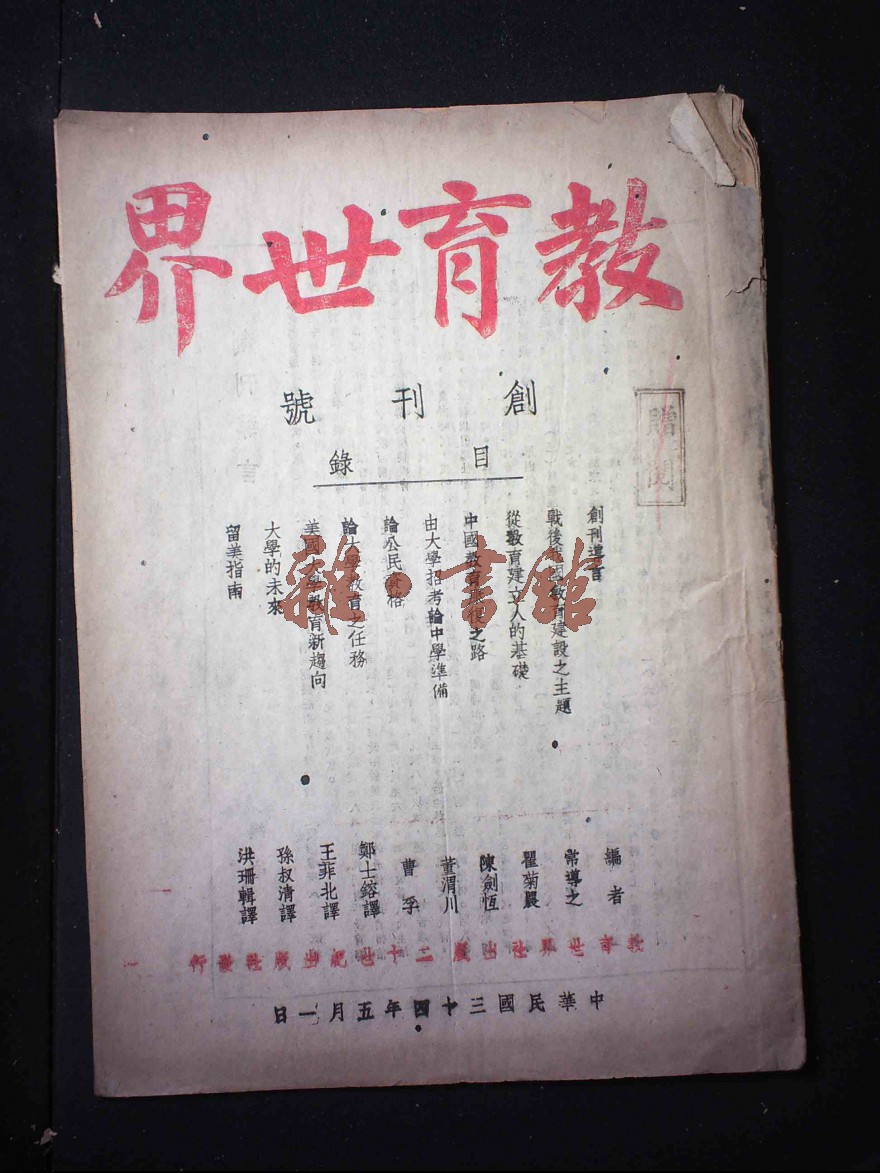 教育世界
創刊號
目錄
贈閱
創刊導言
戰後我國教育建設之主題
從教育建立人的基礎
中國教育復之路
由大學招考論中學準備
論公民資格
論大學教育之任務
美國大學教育新趨向
大學的未來
留美指南
編者
常導之
瞿菊農
陳劍恆
董渭川
曹孚
鄭士鎔譯
王菲北譯
孫叔清譯
洪珊輯譯
教育世界社出版 二十世紀出版社發行
中華民國三十四年五月一日
雜·書館